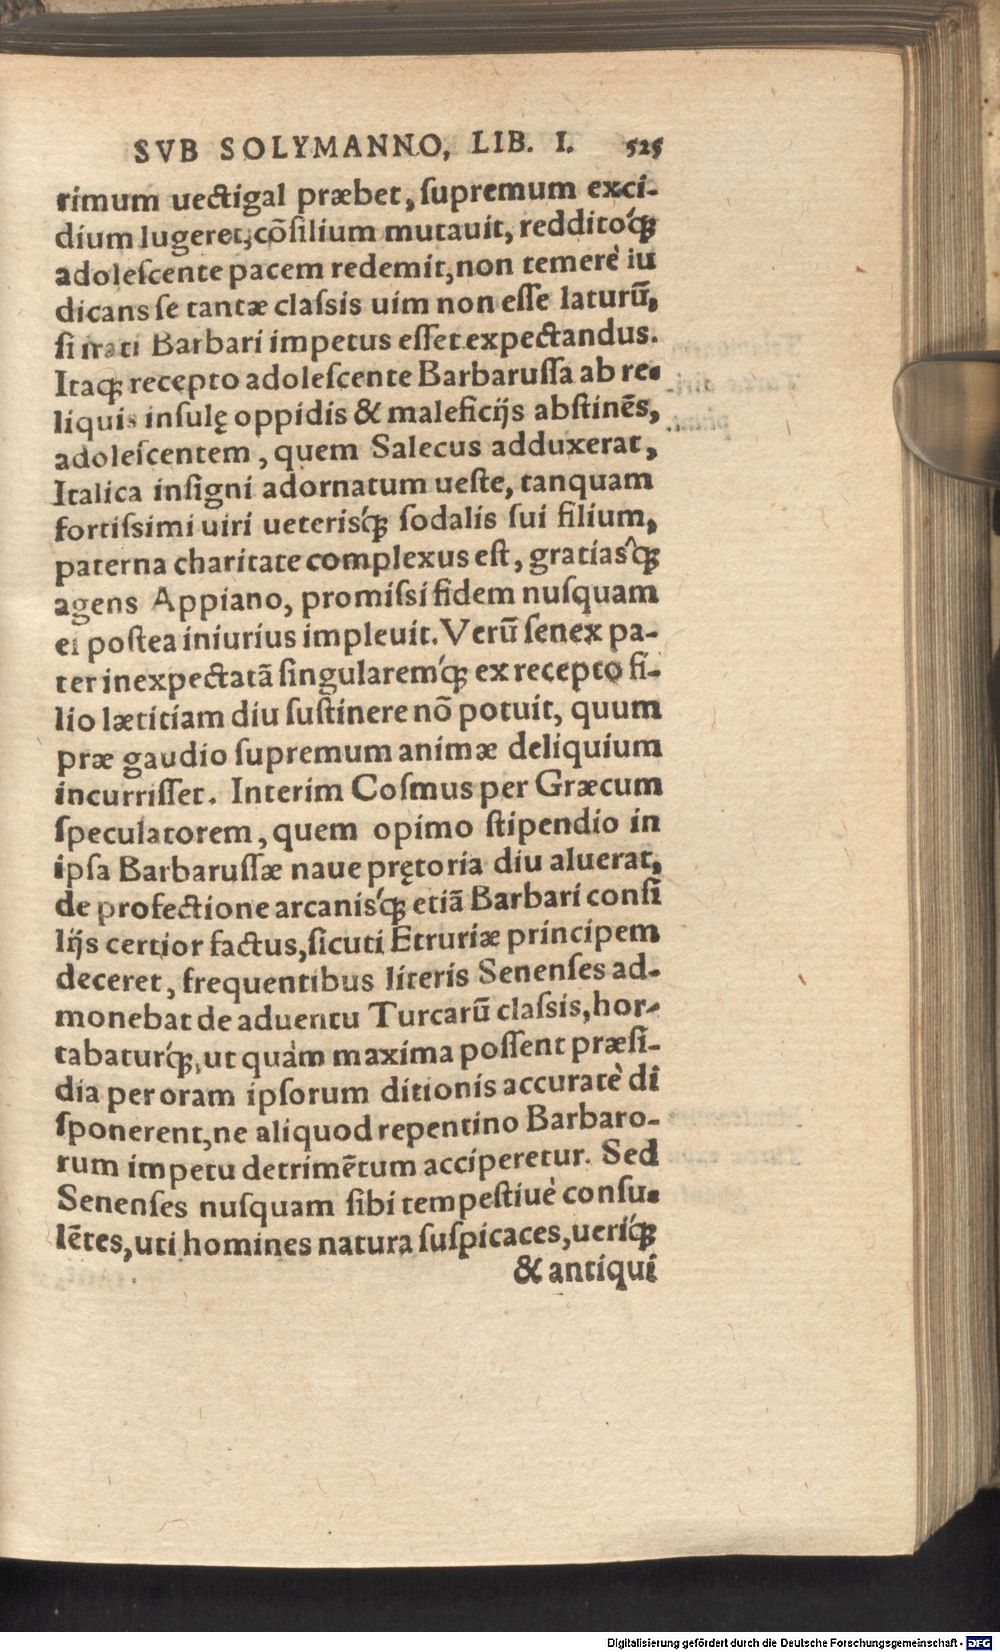 SVB SOLYMANNO, LIB. I. 525
rimum uectigal præbet, ſupremum exci-
dium lugeret, cõſilium mutauit, redditoq́;
adoleſcente pacem redemit, non temerè iu
dicans ſe tantæ claſsis uim non eſſe laturũ,
ſi irati Barbari impetus eſſet expectandus.
Itaq; recepto adoleſcente Barbaruſſa ab re-
liquis inſulę oppidis & maleficijs abſtinẽs,
adoleſcentem, quem Salecus adduxerat,
Italica inſigni adornatum ueſte, tanquam
fortiſsimi uiri ueterisq́; ſodalis ſui filium,
paterna charitate complexus eſt, gratiasq́;
agens Appiano, promiſsi fidem nuſquam
ei poſtea iniurius impleuit. Verũ ſenex pa-
ter inexpectatã ſingularemq́; ex recepto fi-
lio lætitiam diu ſuſtinere nõ potuit, quum
præ gaudio ſupremum animæ deliquium
incurriſſet. Interim Coſmus per Græcum
ſpeculatorem, quem opimo ſtipendio in
ipſa Barbaruſſæ naue prętoria diu aluerat,
de profectione arcanisq́; etiã Barbari conſi
lijs certior factus, ſicuti Etruriæ principem
deceret, frequentibus literis Senenſes ad-
monebat de aduentu Turcarũ claſsis, hor-
tabaturq́;, ut quàm maxima poſſent præſi-
dia per oram ipſorum ditionis accuratè di
ſponerent, ne aliquod repentino Barbaro-
rum impetu detrimẽtum acciperetur. Sed
Senenſes nuſquam ſibi tempeſtiuè conſu-
lẽtes, uti homines natura ſuſpicaces, ueriq́;
& antiqui
Digitalisierung gefördert durch die Deutsche Forschungsgemeinschaft - DFG